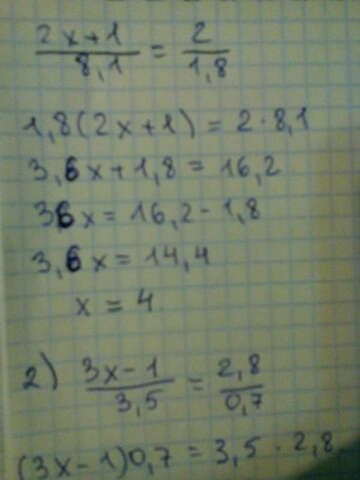 2x+1/8,1 = 2/1,8
1,8(2x+1) = 2·8,1
3,6x+1,8 = 16,2
36x = 16,2-1,8
3,6x = 14,4
x = 4
2) 3x-1/3,5 = 2,8/0,7
(3x-1)0,7 = 3,5·2,8